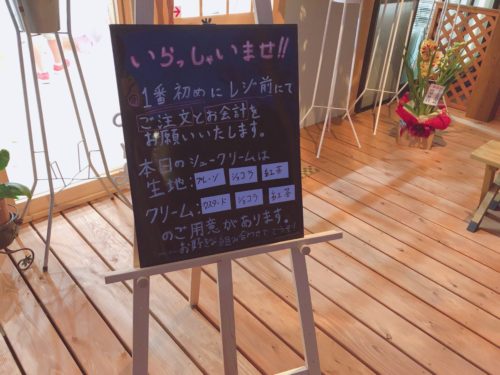 いらっしゃいませ!!
1番初めにレジ前にて
ご注文とお会計を
お願いいたします。
本日のシュークリームは
生地:プレーン ショコラ 紅茶
クリーム:カスタード ショコラ 紅茶
のご用意があります。
お好きな組み合わせでどうぞ!